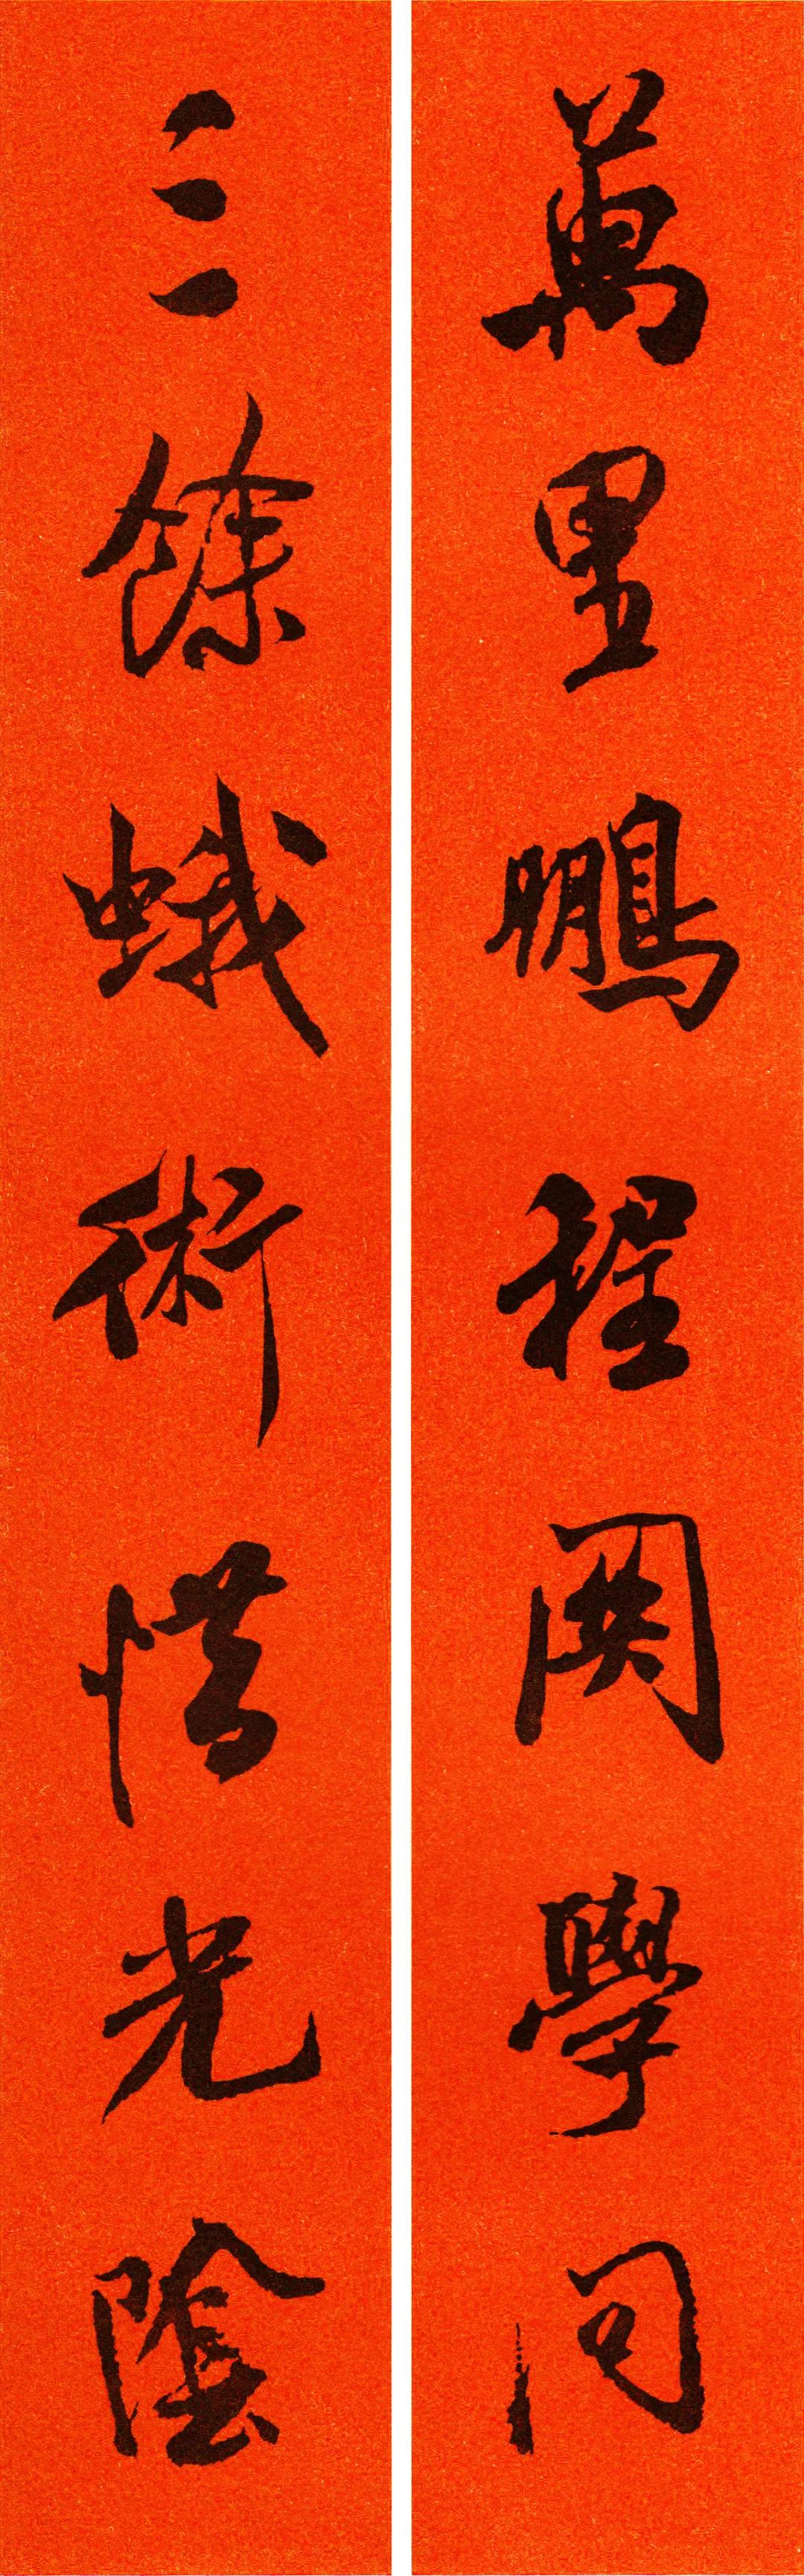 萬里鵬程関學問
三餘蛾術惜光陰